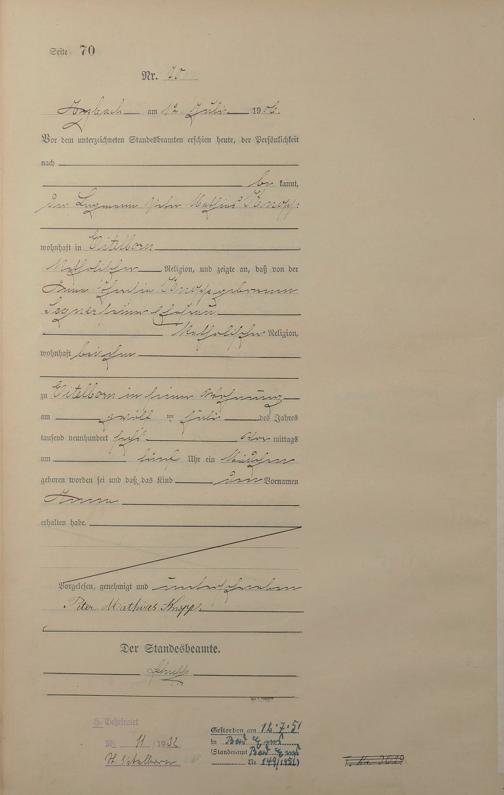 Seite 70
Nr. 70
am 12 Juli 1906.
Vor dem unterzeichneten Standesbeamten erschien heute, der Persönlichkeit
nach
be kannt,
der Peter Mathias Knopp
wohnhaft in Eitelborn
katholischer Religion, und zeigte an, daß von der
Anna Knopp geborenen
seiner Ehefrau
katholischer Religion,
wohnhaft bei ihm
zu Eitelborn in seiner Wohnung
am zwölf ten Juli des Jahres
tausend neunhundert sechs Vor mittags
um fünf Uhr ein Mädchen
geboren worden sei und daß das Kind den Vornamen
Anna
erhalten habe.
Vorgelesen, genehmigt und unterschrieben
Peter Mathias Knopp
Der Standesbeamte.
H. Geheiratet
Nr. 11 /1932
Eitelborn
Gestorben am 12.7.51
in Bad Ems
Standesamt Bad Ems
Nr 149/1951